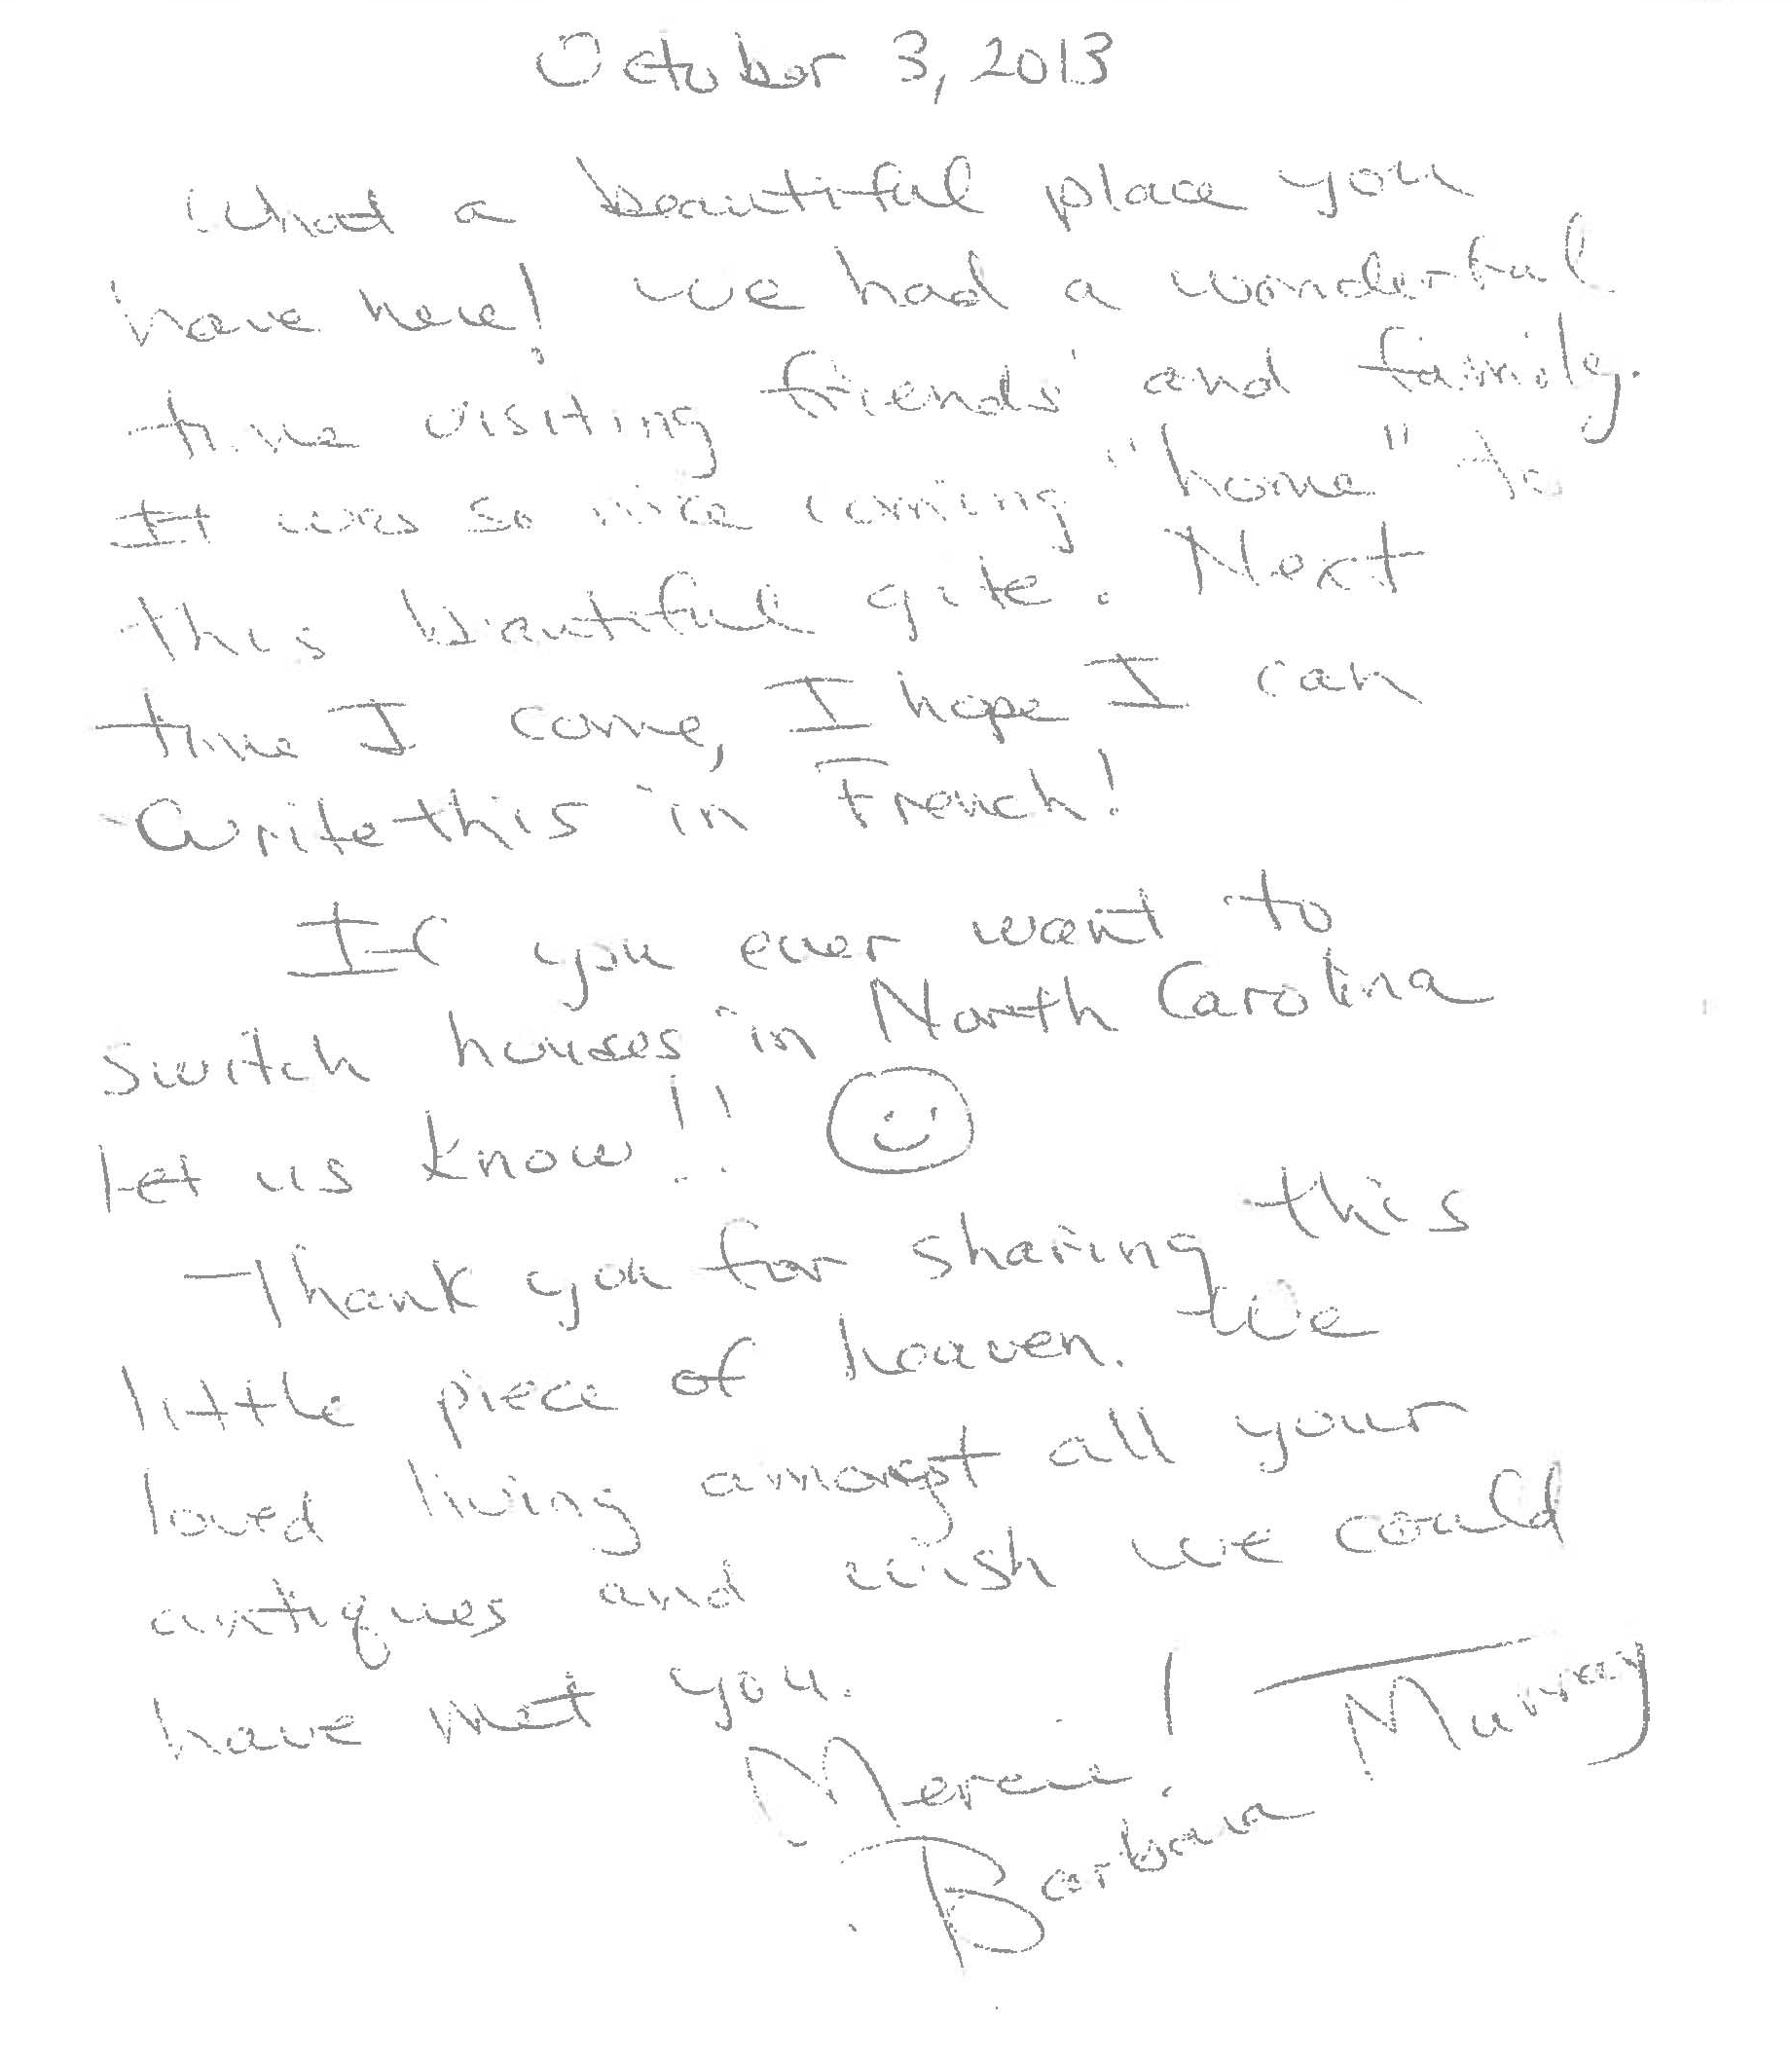 October 3, 2013
What a beautiful place you
have here! We had a wonderful
time visiting friends and family.
It was so nice coming "home" to
this beautiful gite. Next
time I come, I hope I can
write this in French!
If you ever want to
switch houses in North Carolina
let us know!!
Thank you for sharing this
little piece of heaven. We
loved living amongst all your
antiques and wish we could
have met you.
Merci!
Barbara Murray